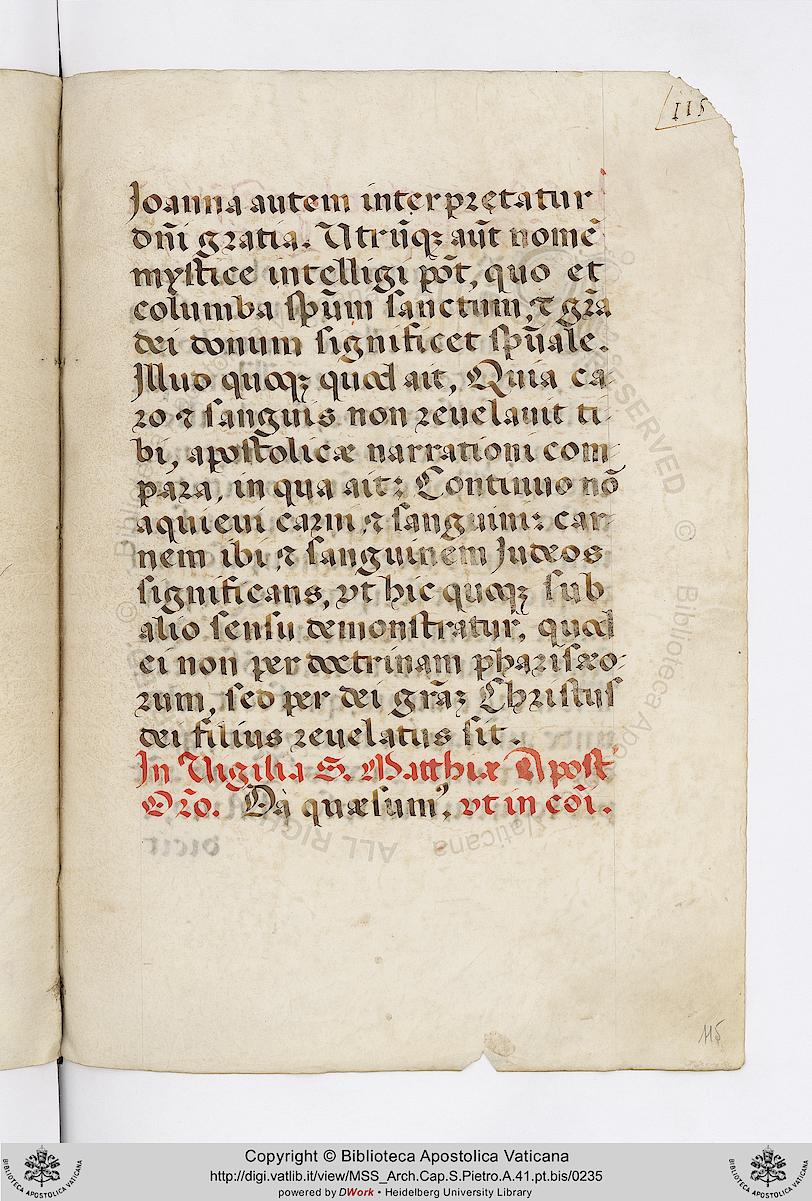 115
Joanna autem interpretatur
dn̄i gratia. Utrūqꝫ aūt nomē
mystice intelligi pōt, quo et
columba spūm sanctum, ⁊ gr̄a
dei donum significet spūale.
Illud quoqꝫ quod ait, Quia ca-
ro ⁊ sanguis non reuelauit ti-
bi, apostolicæ narrationi com-
para, in qua ait: Continuo nō
aquieui carni, ⁊ sanguini: car-
nem ibi, ⁊ sanguinem Judæos
significans, vt hic quoqꝫ sub
alio sensu demonstratur, quod
ei non per doctrinam pharisæo-
rum, sed per dei grāꝫ Christus
dei filius reuelatus sit.
In Vigilia S. Matthiæ Apost
Orō. Da quæsumꝰ, vt in cōi.
115
Copyright © Biblioteca Apostolica Vaticana
http://digi.vatlib.it/view/MSS_Arch.Cap.S.Pietro.A.41.pt.bis/0235
powered by DWork • Heidelberg University Library